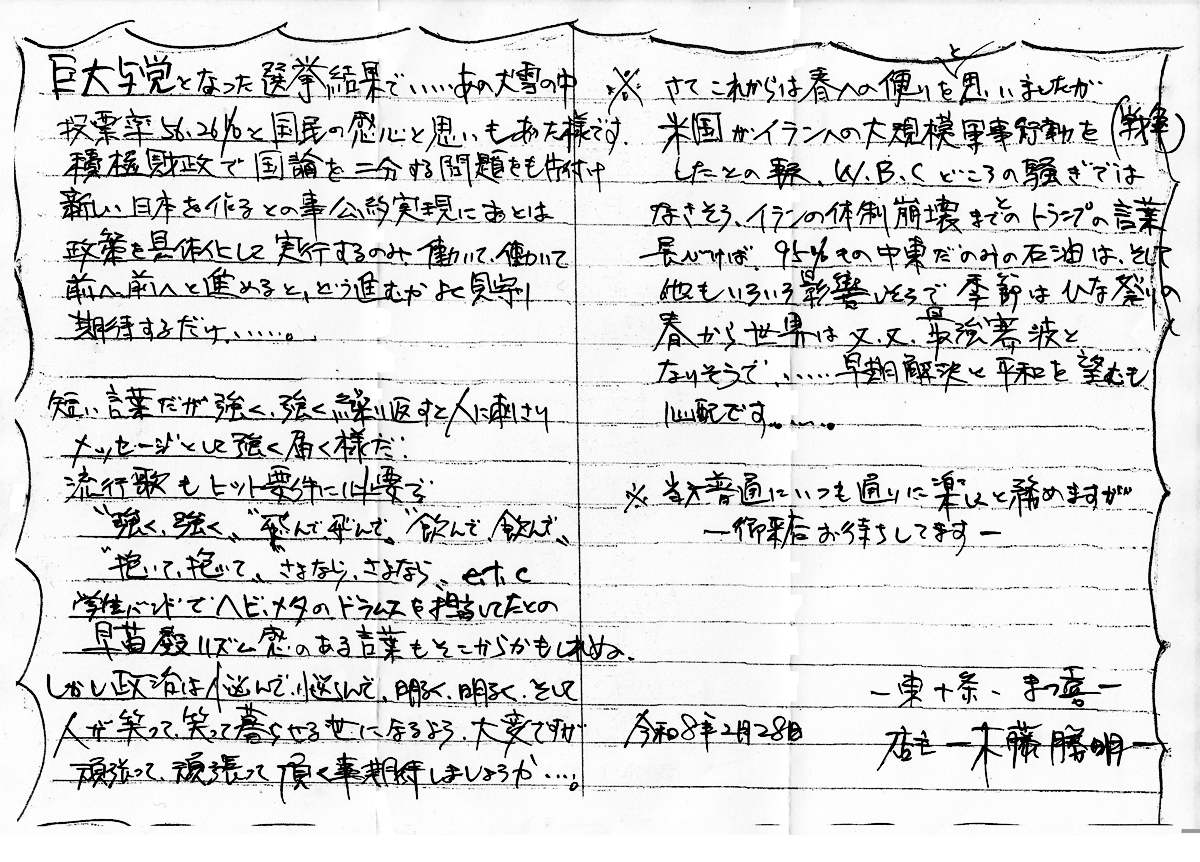 巨大与党となった選挙結果で……あの大雪の中
投票率56.26%と国民の感心と思いもあった様です.
積極財政で国論を二分する問題をも片付け
新しい日本を作るとの事公約実現にあとは
政策を具体化して実行するのみ、働いて、働いて
前へ、前へと進めると、どう進むかよく見守り
期待するだけ、……。
短い言葉だが強く、強く繰り返すと人に刺さり
メッセージとして強く届く様だ.
流行歌もヒット要件に必要で
"強く、強く〟"飛んで、飛んで〟"飲んで、飲んで〟
"抱いて、抱いて〟"さよなら、さよなら〟e.t.c
学生バンドでヘビィメタのドラムスを担当してたとの
早苗殿リズム感のある言葉もそこからかもしれぬ.
しかし政治は悩んで、悩んで、明るく、明るく、そして
人が笑って、笑って暮らせる世になるよう、大変ですが
頑張って、頑張って頂く事期待しましょうか…。
※ さてこれからは春への便りをと思いましたが
米国がイランへの大規模軍事行動を(戦争)
したとの報、W.B.Cどころの騒ぎでは
なさそう、イランの体制崩壊までとのトランプの言葉
長びけば、95%もの中東だのみの石油は、そして
他もいろいろ影響しそうで季節はひな祭りの
春から世界は又、又、最強寒波と
なりそうで、……早期解決と平和を望むも
心配です……。
※ 当方普通にいつも通りに楽しくと務めますが
ー御来店お待ちしてますー
ー東十条、まつ喜ー
令和8年2月28日
店主 ー木藤勝明ー